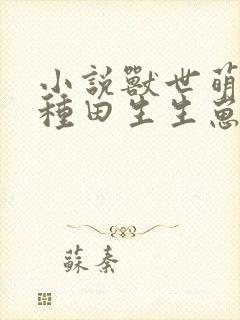 小說獸世萌
種田生生崽
蘇秦